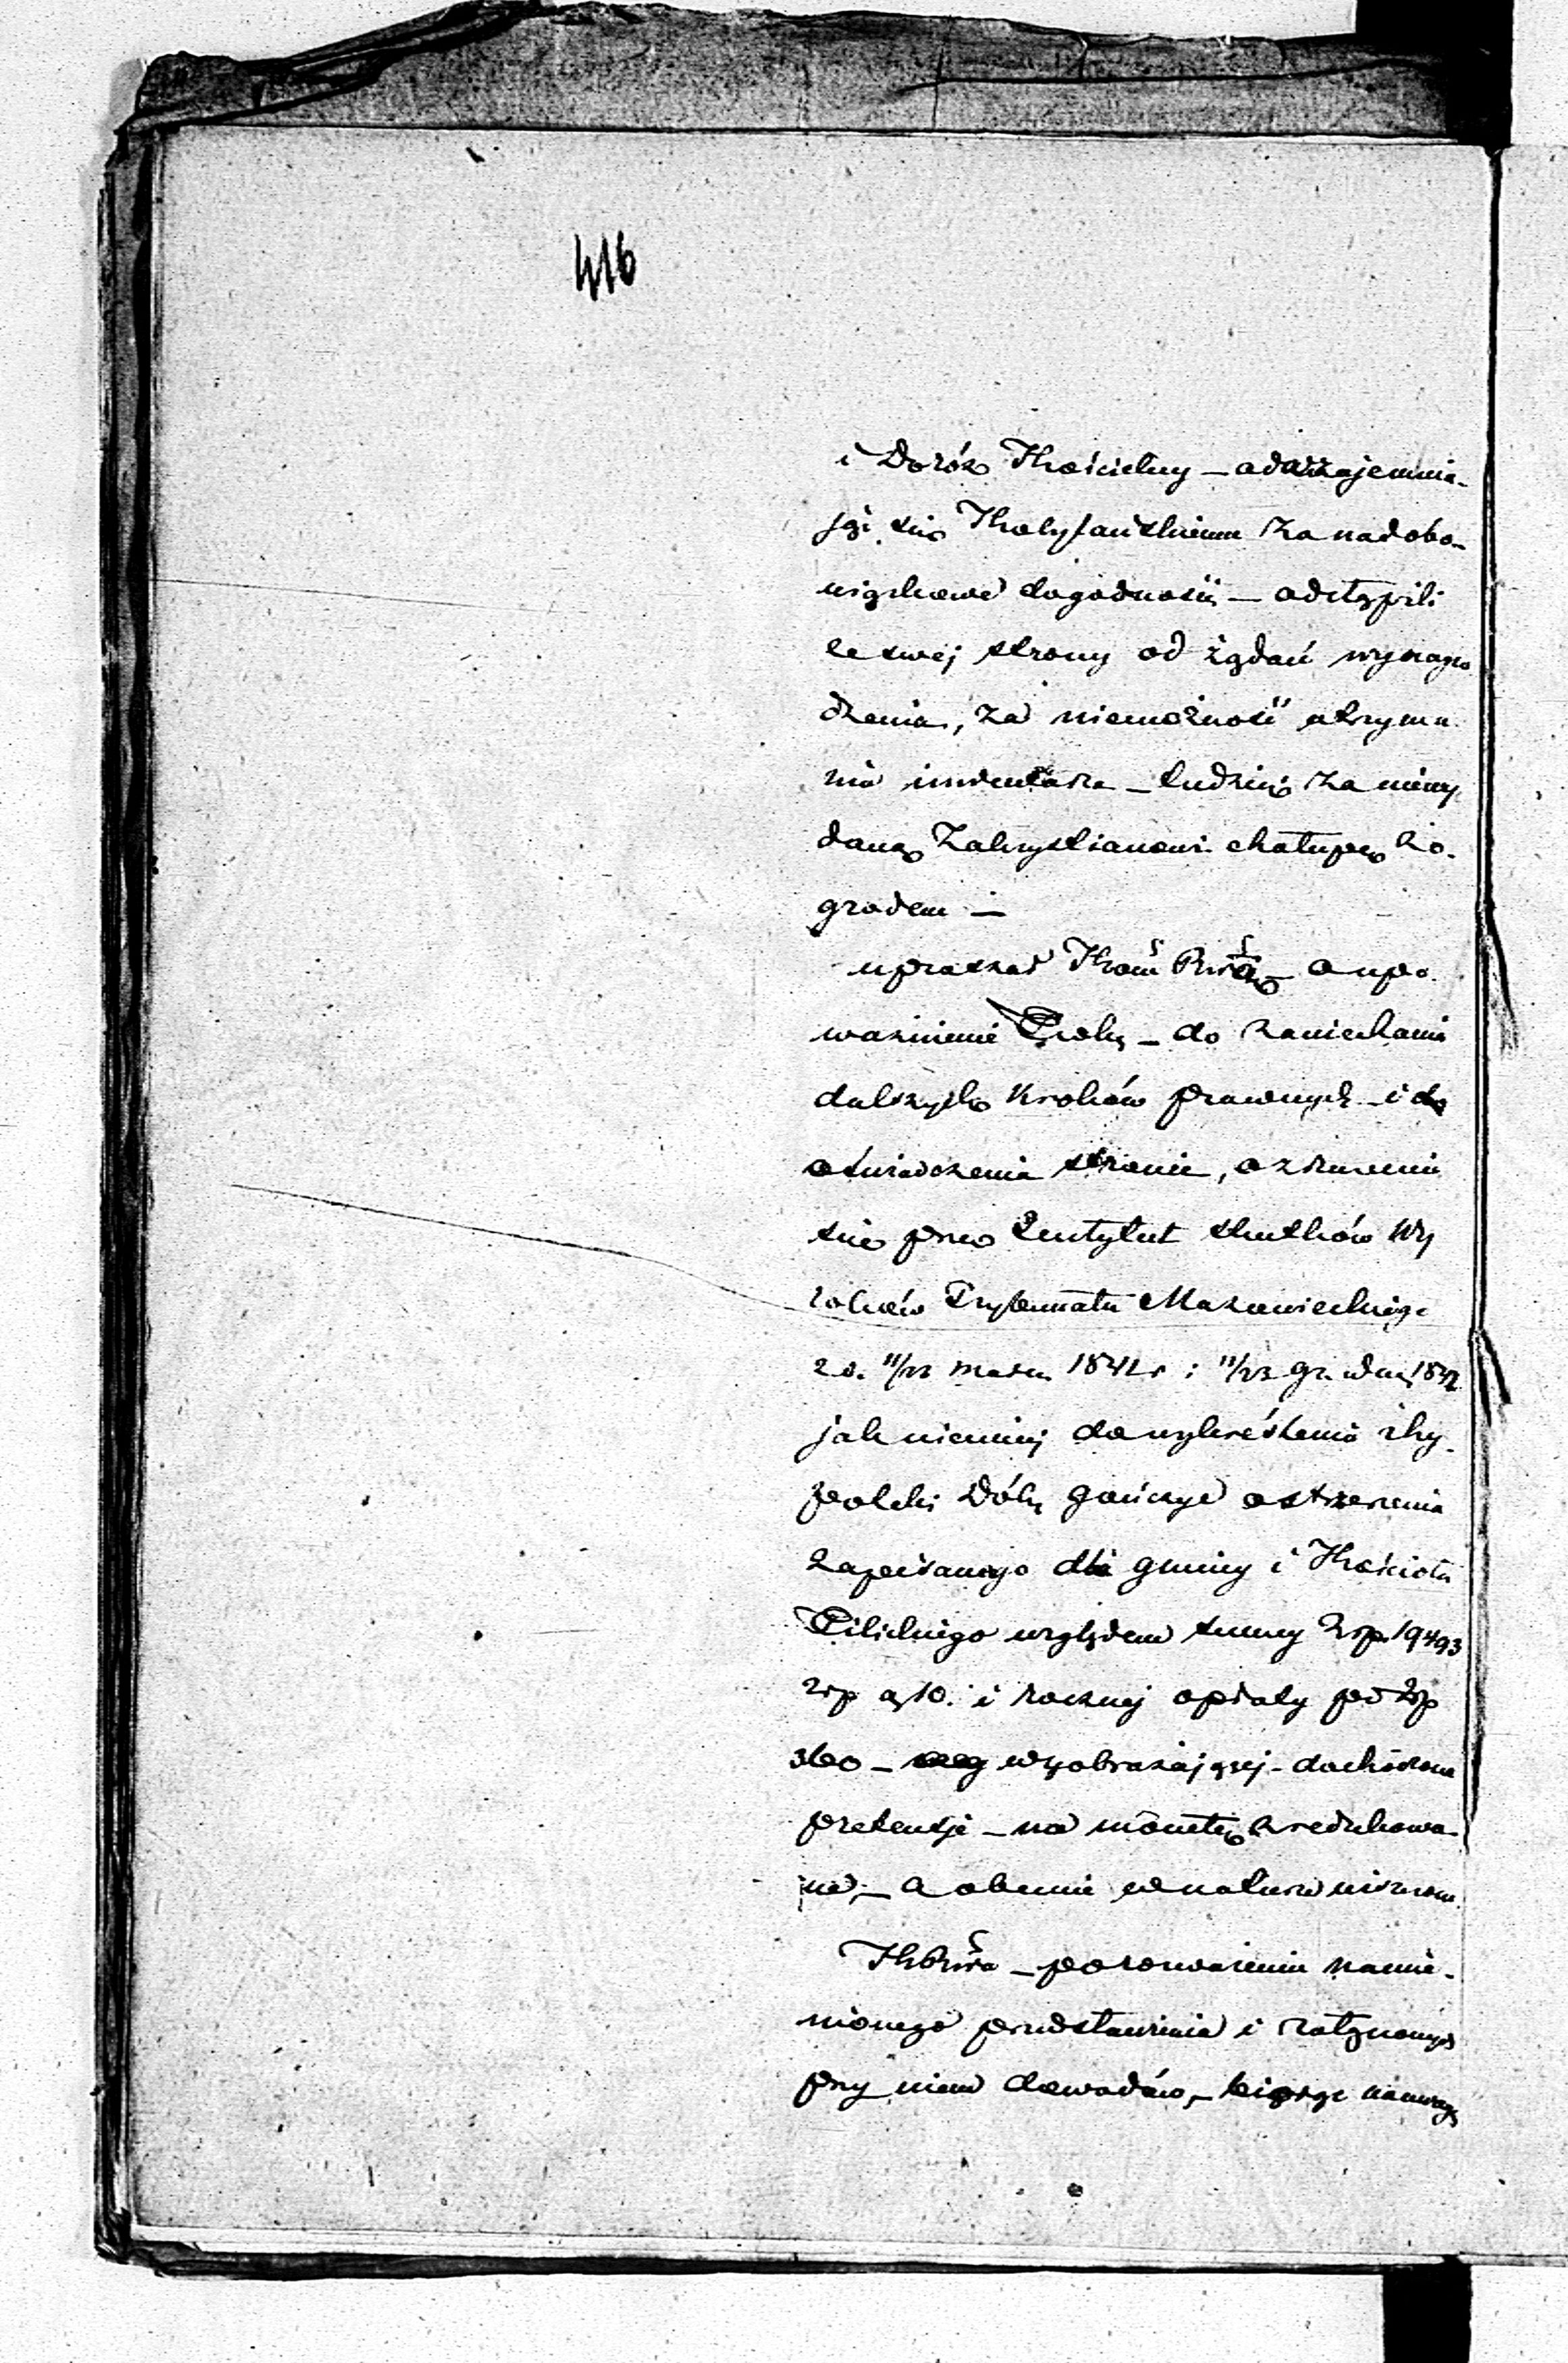 416
i Dozór Kościelny — odwzajemnia-
jąc się Kolyszańskiemu za nadobo-
wiązkowe dogodności — odstąpili
ze swej strony od żądań wynagro
dzenia, za niemożność utrzyma
nia inwentarza — tudzież za niewy
daną Zakrystianowi chałupę z o-
grodem —
upraszać Kom Rzą — o upo
ważnienie — do zaniechania
dalszych kroków prawnych — i do
oświadczenia stronie, o zrzeczeniu
się przez Instytut skutków Wy
roków Trybunału Mazowieckiego
z d. 11/23 1842 r i 11/23 grudnia 1842
jak niemniej do wykreślenia z hy-
poteki Dóbr ostrzeżenia
zapisanego dla gminy i Kościoła
względem summy Zrp. 19493
zrp g 10. i rocznej opłaty po Zrp
360 — wyobrażającej — dochodzone
pretensje — na monetę zredukowa-
ne, — a obecnie w naturze
— po rozważeniu namie-
nionego przedstawienia i załączonych
przy niem dowodów, — biorąc na uwagę